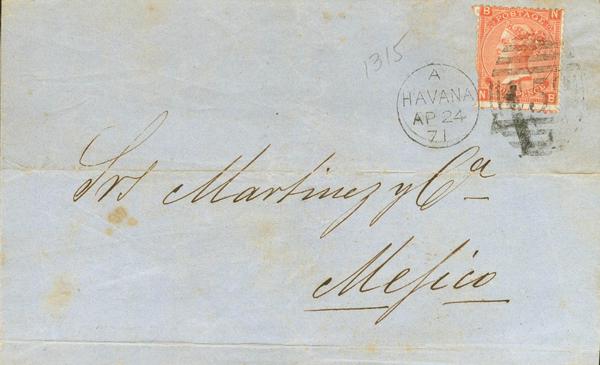 B N
POSTAGE
N B
1315
A
HAVANA
AP 24
71
Srs Martinez y Ca
Mejico